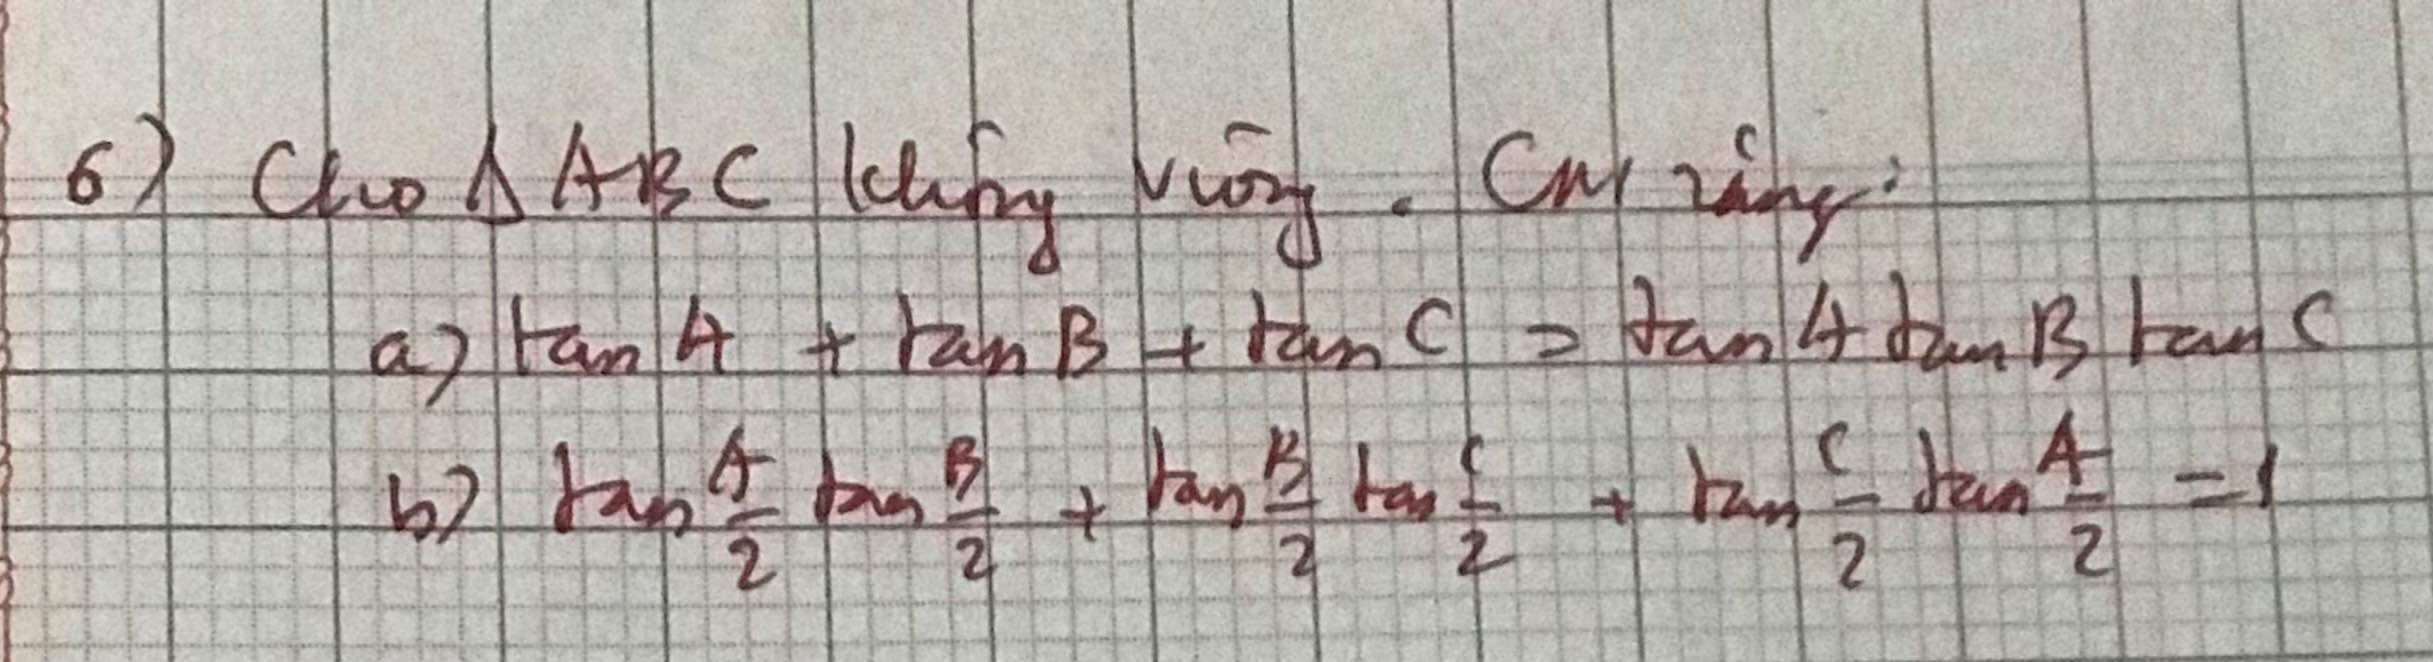 6) Cho Δ ABC không vuông. CM rằng:
a) tan A + tan B + tan C = tan A tan B tan C
b) tan A/2 tan B/2 + tan B/2 tan C/2 + tan C/2 tan A/2 = 1